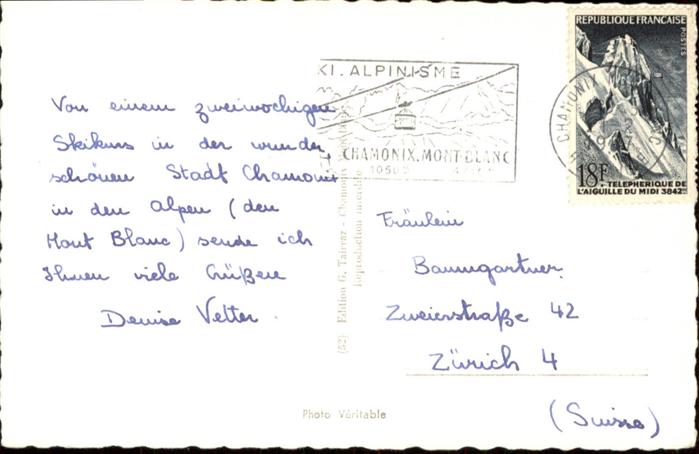 Von einem zweiwochigen
Skikurs in der wunder,
schönen Stadt Chamonix
in den Alpen (den
Mont Blanc) sende ich
Ihnen viele Grüßen
Denise Vetter.
KI. ALPINISME
CHAMONIX. MONT-BLANC
REPUBLIQUE FRANÇAISE
POSTES
CHAMONIX
18F
TELEPHERIQUE DE
L'AIGUILLE DU MIDI 3842m
(52) Edition G. Tairraz - Chamonix
Reproduction interdite
Fräulein
Baumgartner
Zweierstraße 42
Zürich 4
(Suisse)
Photo Véritable